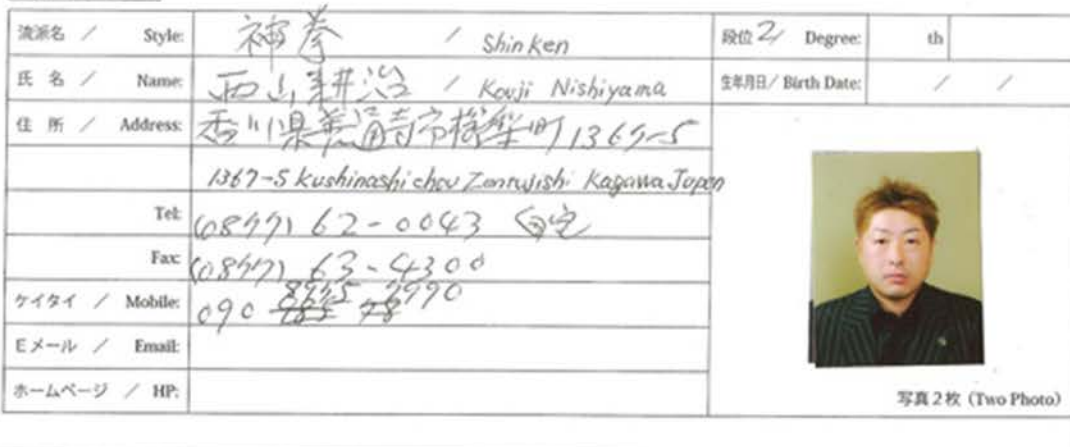 流派名 / Style: 神拳 / Shinken 段位 2/ Degree: th
氏 名 / Name: 西山耕治 / Kouji Nishiyama 生年月日/ Birth Date: / /
住 所 / Address: 香川県善通寺市櫛梨町1367-5
1367-5 Kushinashichou Zentujishi Kagawa Japan
Tel: (0877) 62-0043 自宅
Fax: (0877) 63-4300
ケイタイ / Mobile: 090
Eメール / Email:
ホームページ / HP:
写真2枚 (Two Photo)